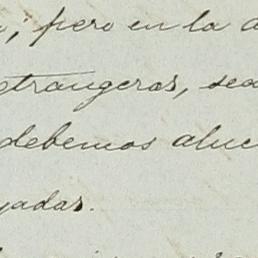 ; pero en la
etrangeros, sea
debemos aluc
yadas.